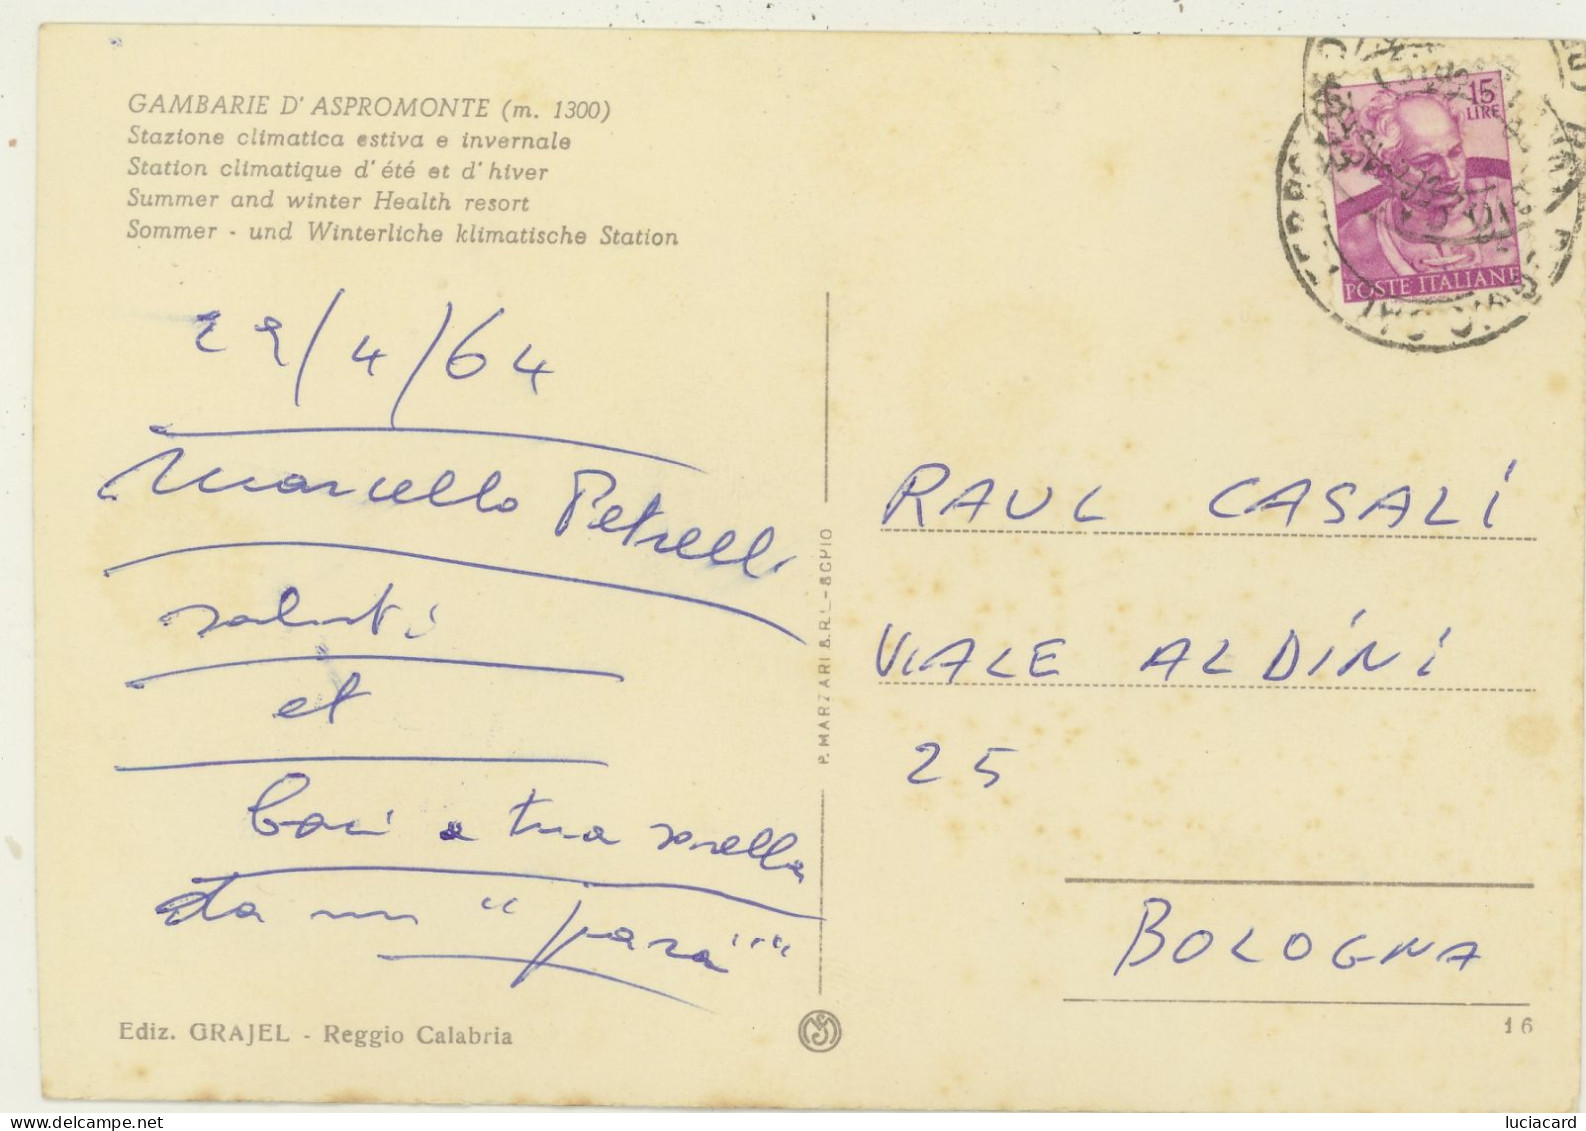 GAMBARIE D' ASPROMONTE (m. 1300)
Stazione climatica estiva e invernale
Station climatique d' été et d' hiver
Summer and winter Health resort
Sommer - und Winterliche klimatische Station
22/4/64
Marcello Petrelli
saluti
et
baci a tua sorella
da un "parà"
Ediz. GRAJEL - Reggio Calabria
P. MARZARI S.R.L. - SCHIO
15
LIRE
POSTE ITALIANE
RAUL CASALI
VIALE ALDINI
25
BOLOGNA
16
luciacard